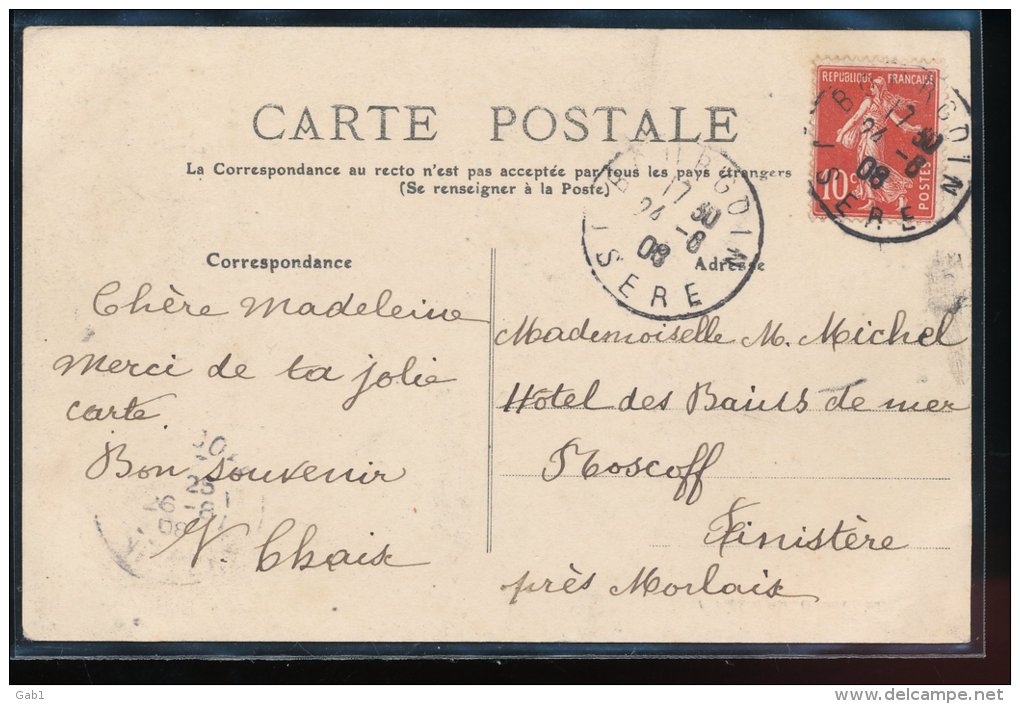 CARTE POSTALE
La Correspondance au recto n'est pas acceptée par tous les pays étrangers
(Se renseigner à la Poste)
REPUBLIQUE FRANÇAISE
10c
POSTES
BOURGOIN
17 30
24 -8
08
ISERE
BOURGOIN
17 30
24 -8
08
ISERE
Correspondance
Chère Madeleine
Merci de ta jolie
carte
Bon souvenir
Chaix
26 -8
08
Adresse
Mademoiselle M. Michel
Hôtel des Bains de mer
Roscoff
Finistère
près Morlaix
Gab1
www.delcampe.net